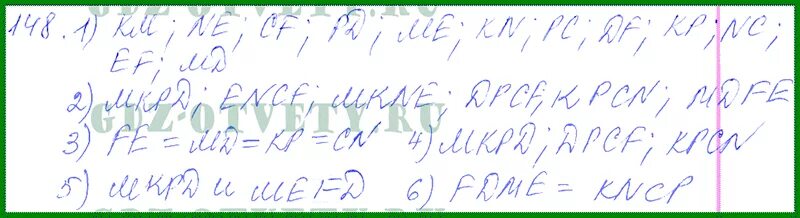 148. 1) KM; NE; CF; PD; ME; KN; PC; DF; KP; NC;
EF; MD
2) MKPD; ENCF; MKNE; DPCF; KPCN; MDFE
3) FE = MD = KP = CN 4) MKPD; DPCF; KPCN
5) MKPD и MEFD 6) FDME = KNCP
GDZ-OTVETY.RU
GDZ-OTVETY.RU